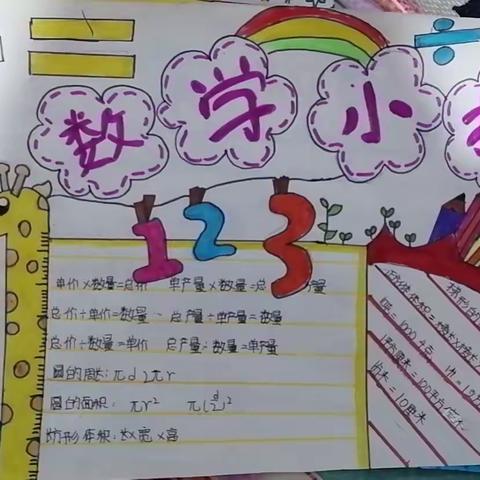 数学小
123
单价×数量=总价 单产量×数量=总产量
总价÷单价=数量 总产量÷单产量=数量
总价÷数量=单价 总产量÷数量=单产量
圆的周长:πd 2πr
圆的面积: πr² π(d/2)²
方形体积:长×宽×高
梯形的
=1000千克
=100平方分米
=10厘米